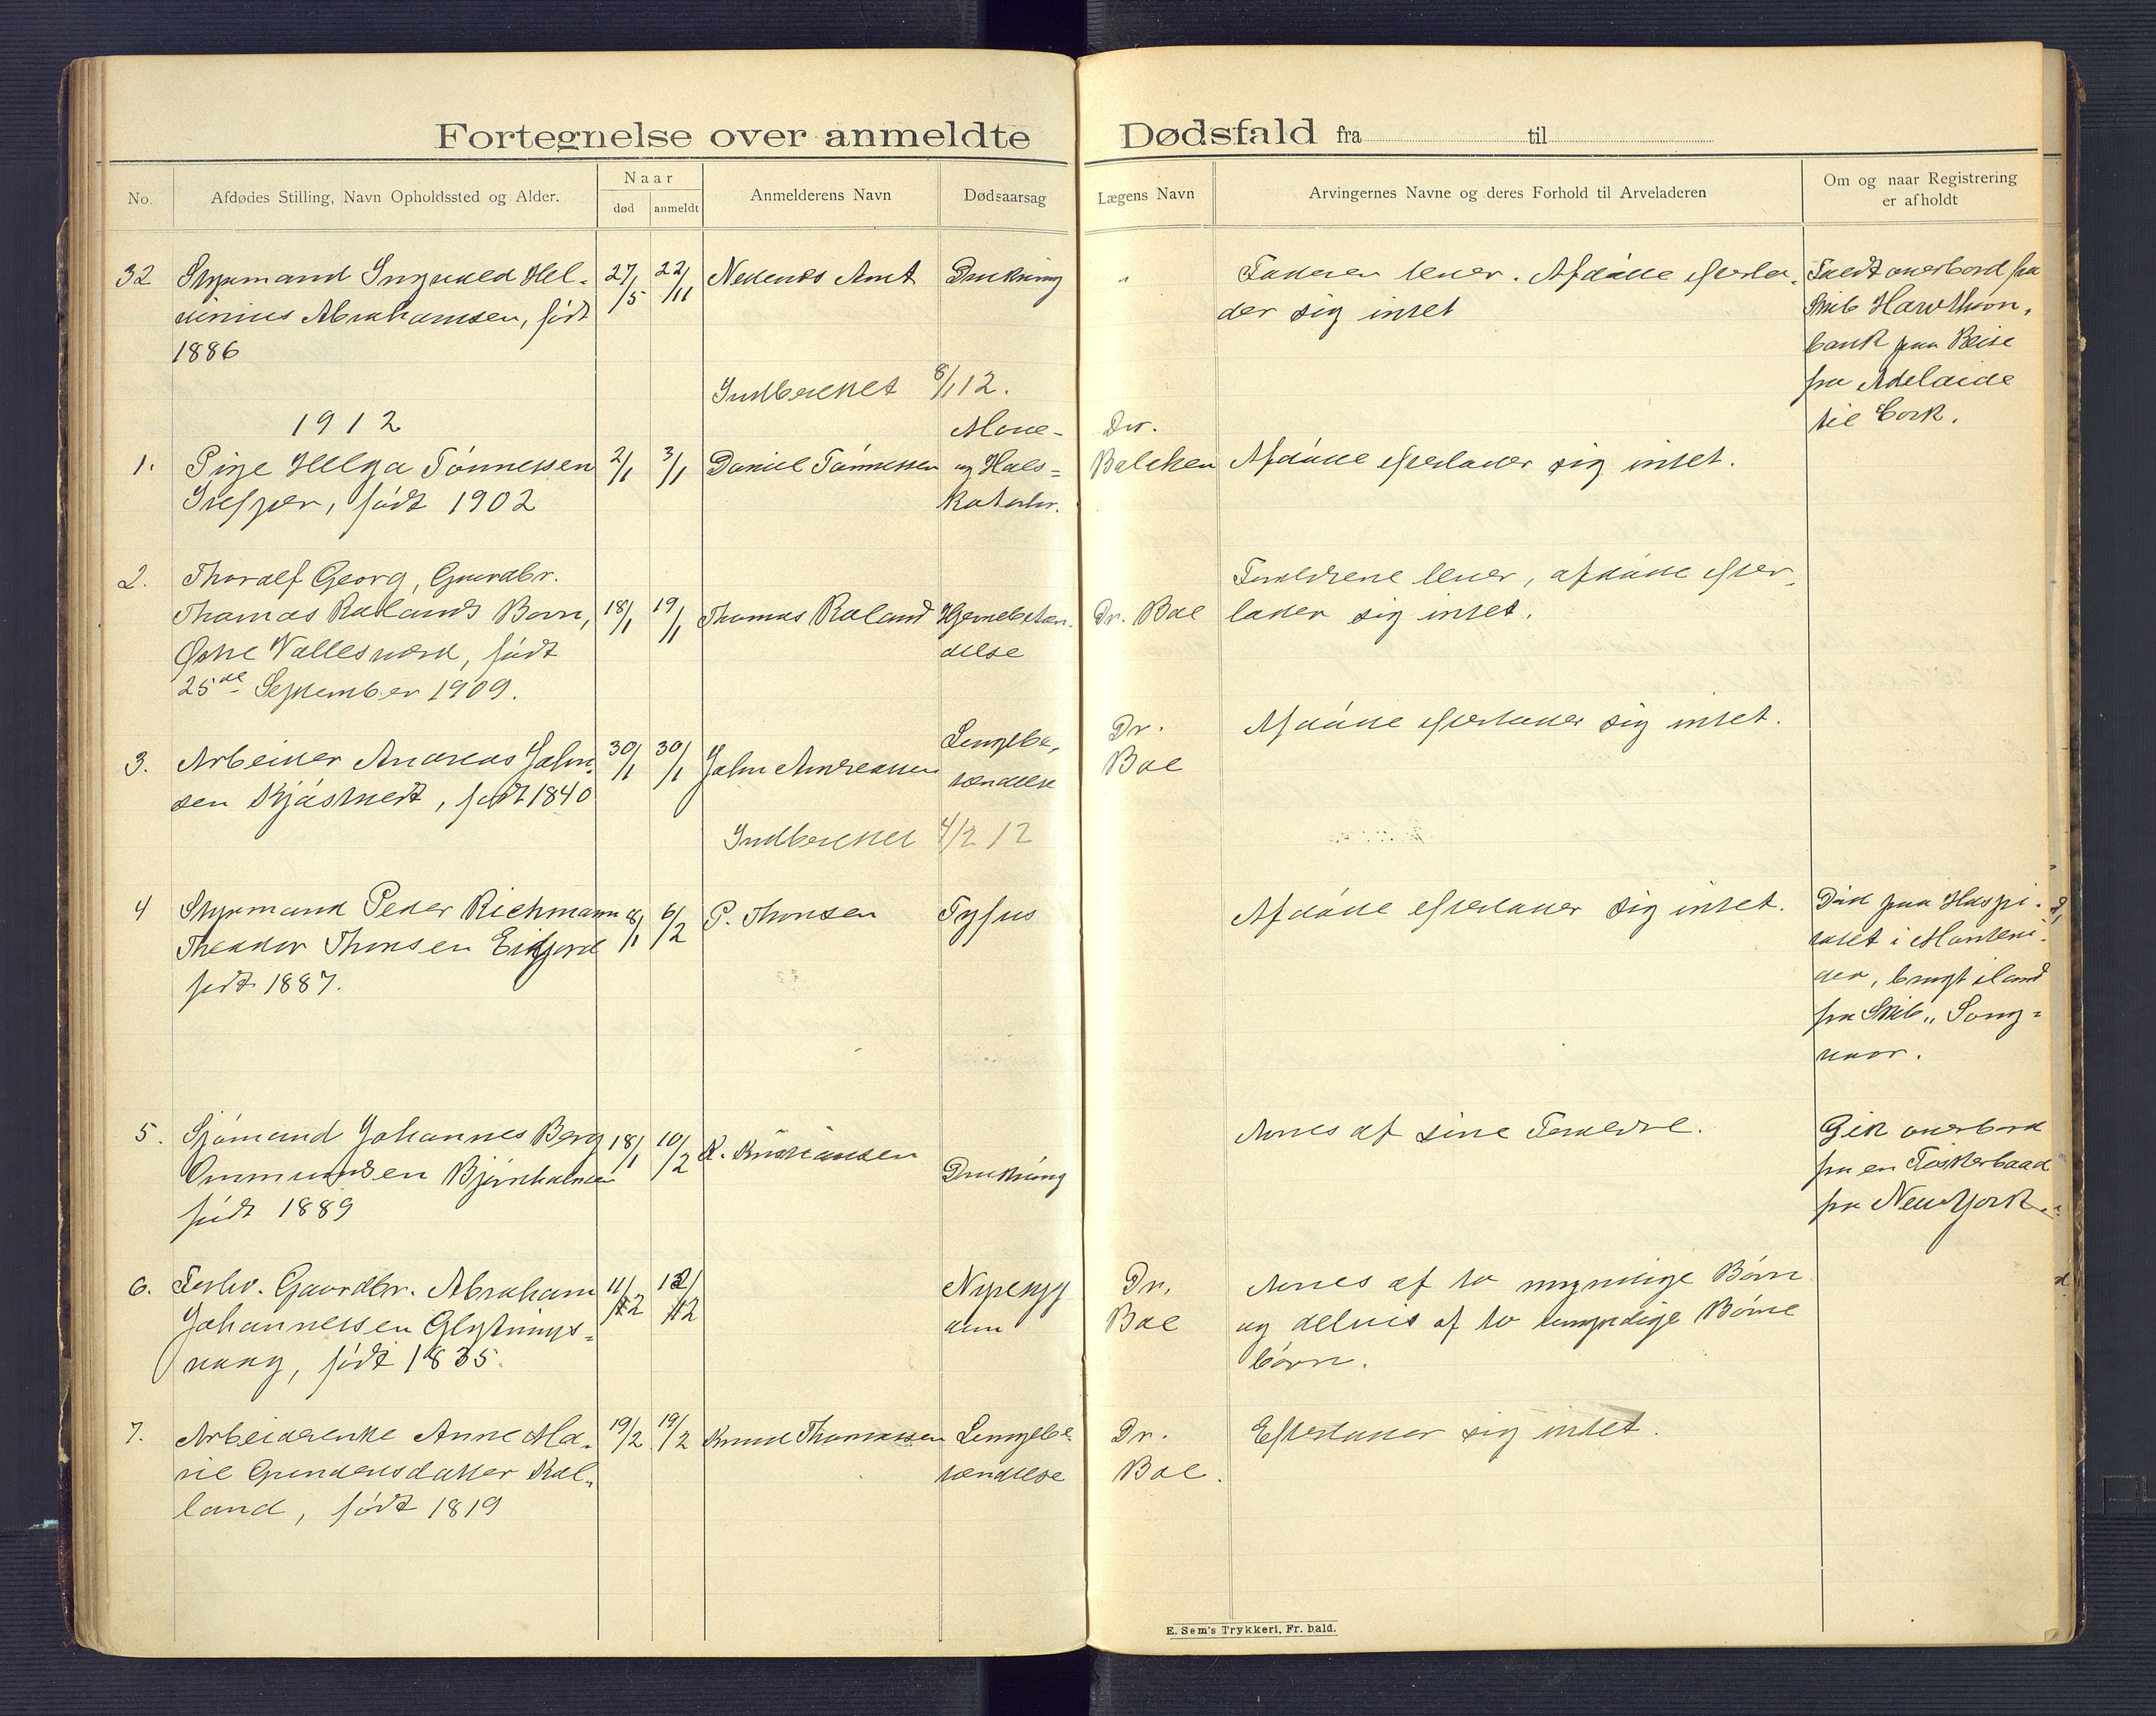 Fortegnelse over anmeldte Dødsfald fra til
No.
Afdødes Stilling, Navn Opholdssted og Alder.
Naar
død
anmeldt
Anmelderens Navn
Dødsaarsag
Lægens Navn
Arvingernes Navne og deres Forhold til Arveladeren
Om og naar Registrering
er afholdt
32 Styrmand Ingvald Hel-
vinius Abrahamsen, født
1886
27/5
22/11
Nedenes Amt
Drukning
"
Faderen lever. Afdøde efterla-
der sig intet
Faldt overbord fra
Skib Hawthorn-
bank paa Reise
fra Adelaide
til Cork.
Indberettet 8/1 12.
1912
1. Pige Helga Tønnessen
født 1902
2/1
3/1
Daniel Tønnessen
Mave-
og Hals-
katarhr.
Dr.
Balchen
Afdøde efterlader sig intet.
2. Thoralf Georg, Gaardbr.
Thomas Rølands Barn,
Østre Vallesværd, født
25de September 1909.
18/1
19/1
Thomas Røland
Hjernebetæn-
delse
Dr. Boe
Forældrene lever, afdøde efter-
lader sig intet.
3. Arbeider Andreas John-
sen Kjøstvedt, født 1840
30/1
30/1
John Andreassen
Lungebe-
tændelse
Dr.
Boe
Afdøde efterlader sig intet.
Indberettet 4/2 12
4 Styrmand Peder Richmann
Theodor Thorsen Eikjord
født 1887.
8/1
6/2
P. Thorsen
Tyfus
Afdøde efterlader sig intet.
Død paa Hospi-
talet i Montevi-
deo, bragt iland
fra Skib "Song-
vaar.
5. Sjømand Johannes Berg
Ommundsen Bjørnholmen
født 1889
18/1
10/2
K. Kristiansen
Drukning
Arves af sine Forældre.
Gik overbord
fra en Fiskerbaad
fra New York
6. Forhv. Gaardbr. Abraham
Johannessen
født 1835.
11/2
12/2
Nyresyg
dom
Dr.
Boe
Arves af to myndige Børn
og delvis af to umyndige Børne
børn.
7. Arbeiderenke Anne Ma-
rie Gundersdatter Kal-
land, født 1819
19/2
19/2
Knud Thomassen
Lungebe-
tændelse
Dr.
Boe.
Efterlader sig intet.
E. Sem's Trykkeri, Fr. hald.